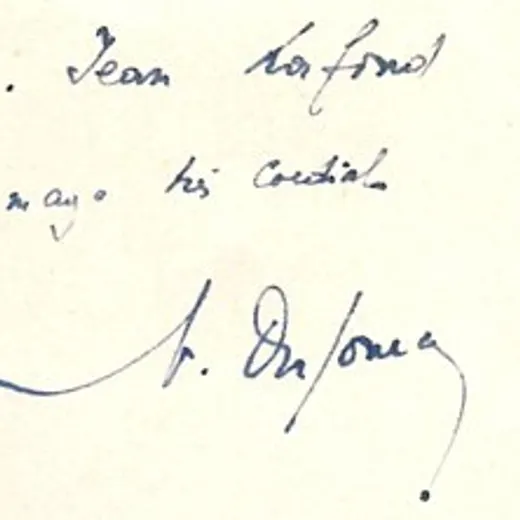 . Jean Lafond
mage très cordial
. Dufour